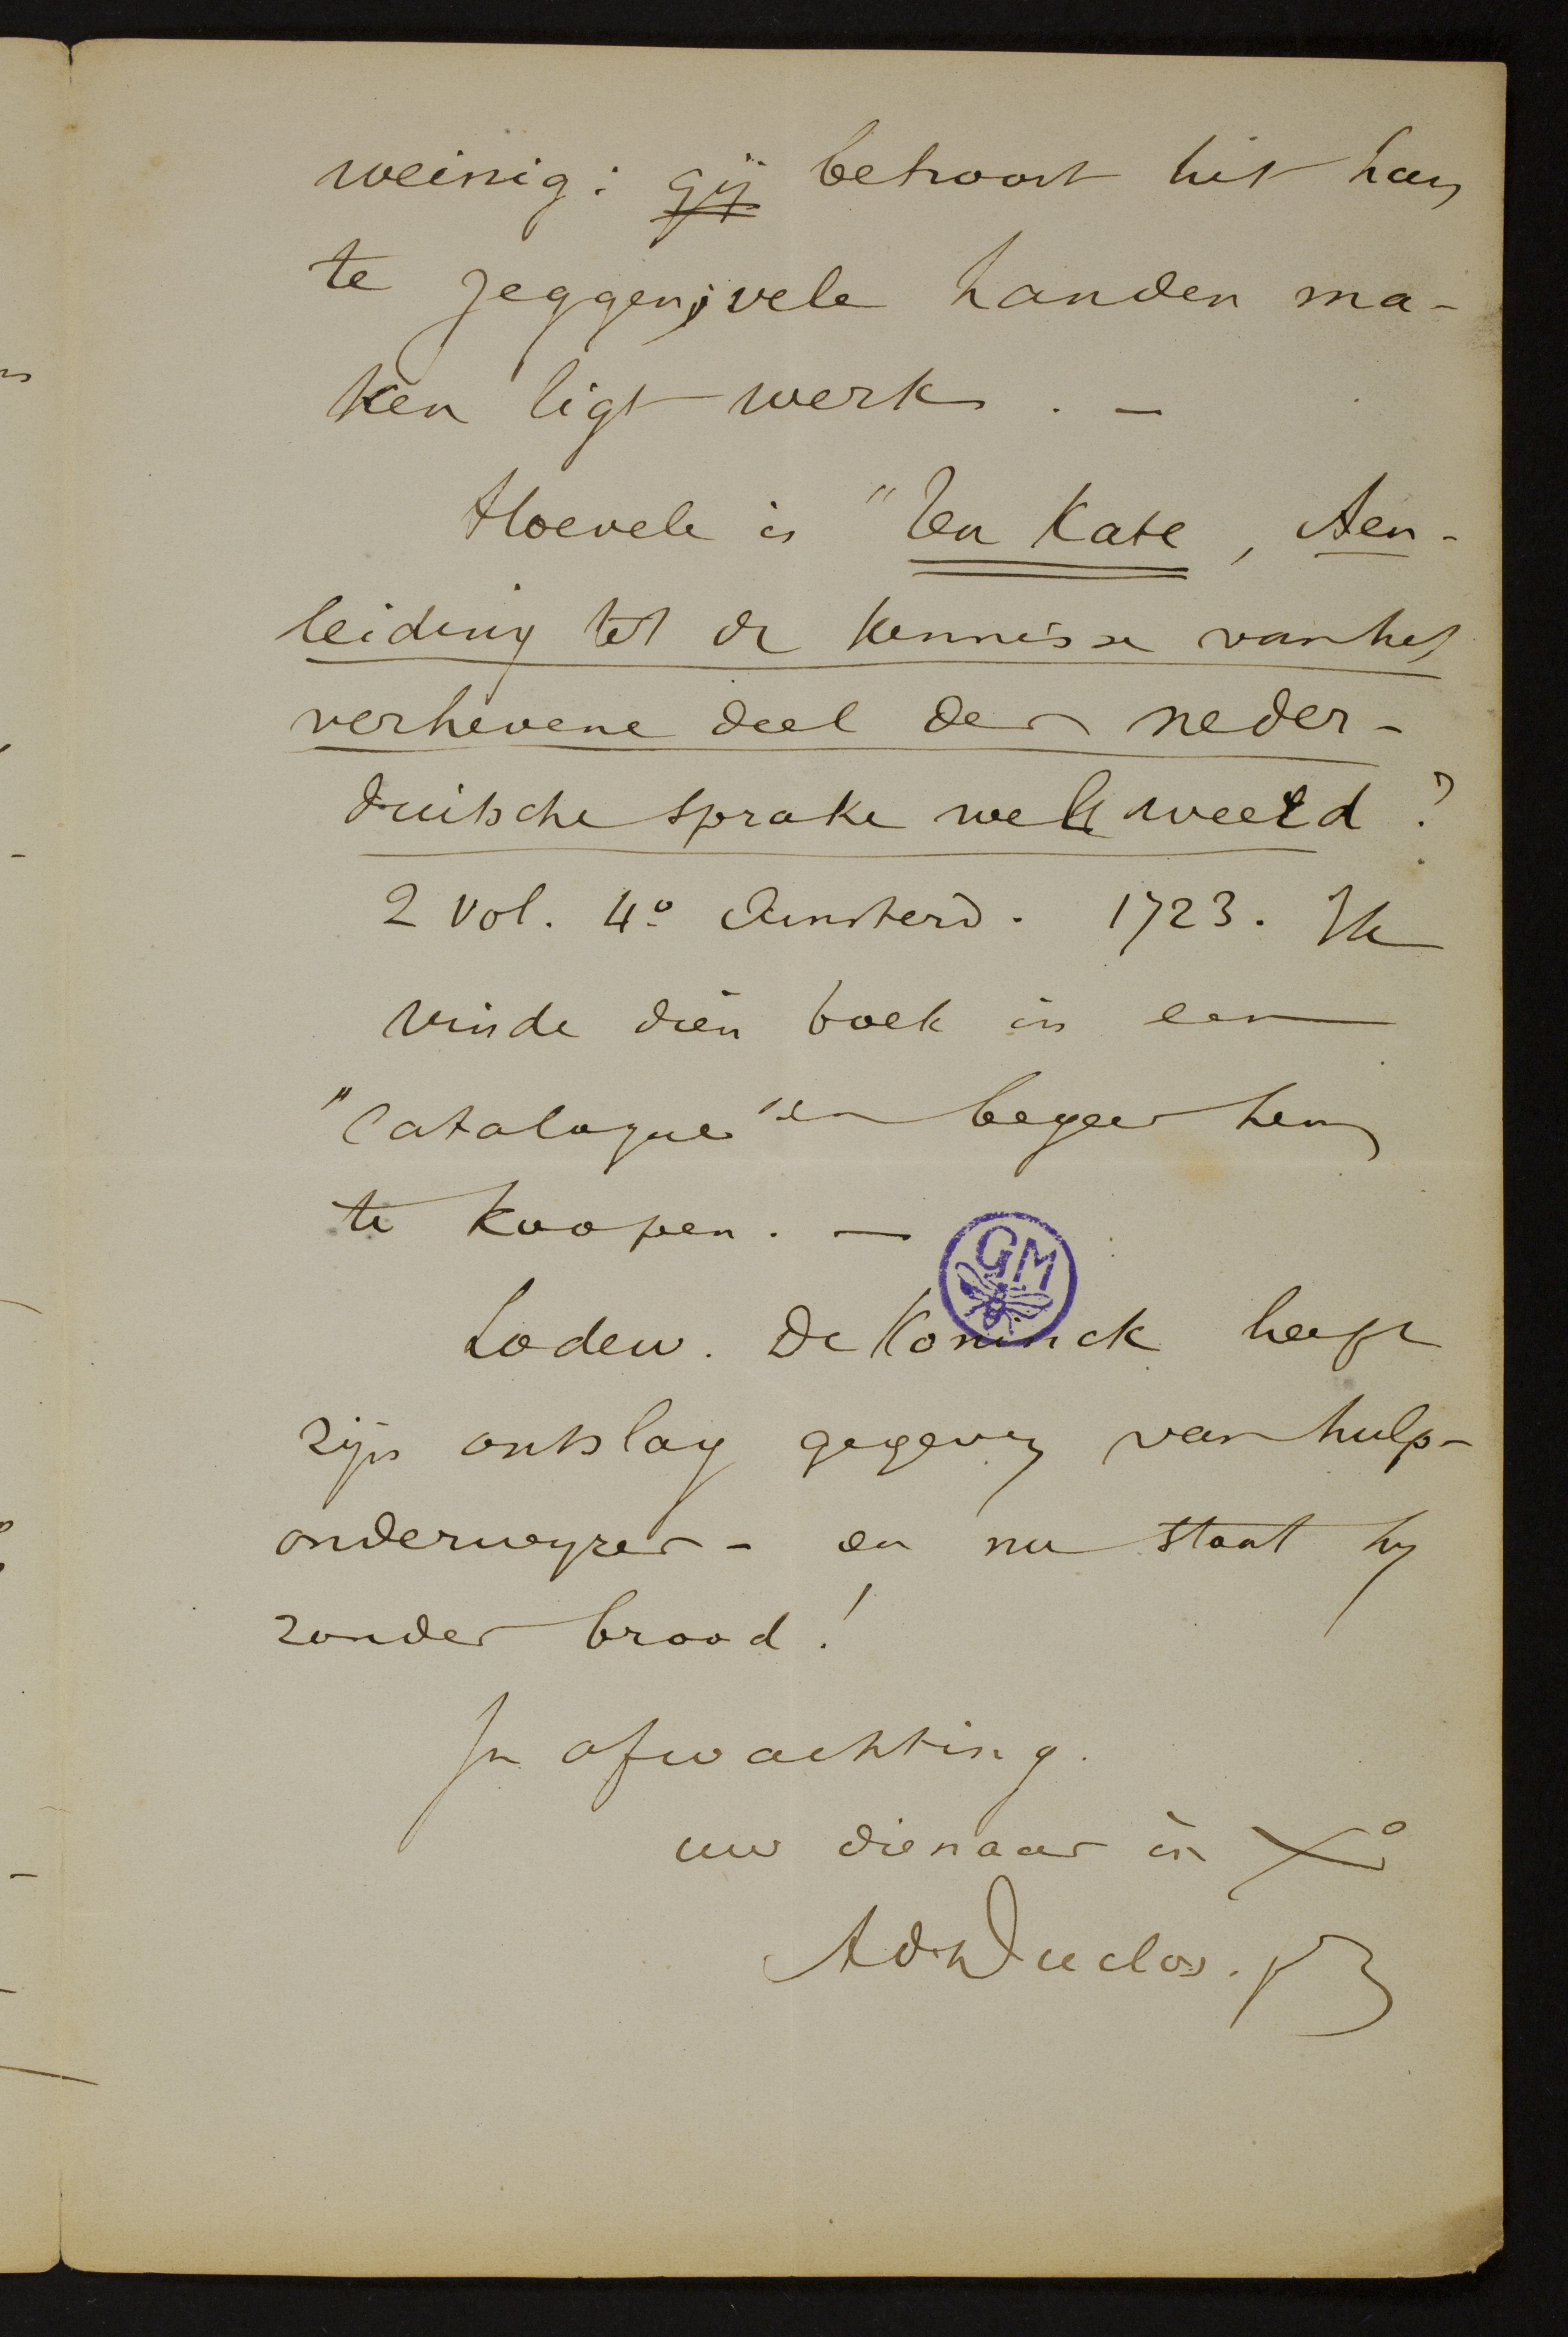 weinig: gij behoort het hun
te zeggen; vele handen ma-
ken ligt werk. —
Hoevele is "Ten Kate, Aen-
leiding tot de kennisse van het
verhevene deel der neder-
duitsche sprake wel weerd?
2 vol. 4º Amsterd. 1723. Ik
vinde dien boek in een
"Catalogue" en begeer hem
te koopen. —
GM
Lodew. De Koninck heeft
zijn ontslag gegeven van hulp-
onderwyzer - en nu staat hy
zonder brood!
In afwachting.
uw dienaar in Xº
Ad Duclos.